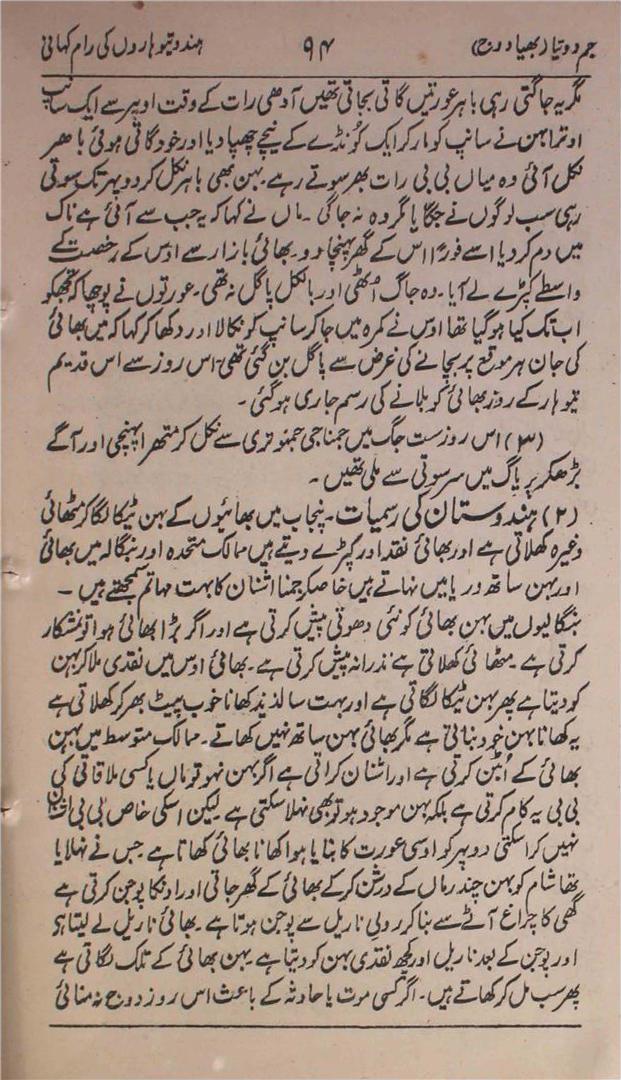 جم دوتیا (بھیا دوج) ۹۴ ہندو تیوہاروں کی رام کہانی
مگر یہ جاگتی رہی باہر عورتیں گاتی بجاتی تھیں آدھی رات کے وقت اوپر سے ایک سانپ
اوترا بہن نے سانپ کو مار کر ایک کونڈے کے نیچے چھپا دیا اور خود گاتی ہوئی باھر
نکل آئی وہ میاں بی بی رات بھر سوتے رہے۔ بہن بھی باہر نکل کر دوپہر تک سوتی
رہی سب لوگوں نے جگایا مگر وہ نہ جاگی۔ ماں نے کہا کہ یہ جب سے آئی ہے ناک
میں دم کر دیا اسے فوراً اس کے گھر پہنچا دو۔ بھائی بازار سے اوس کے رخصت کے
واسطے کپڑے لے آیا۔ وہ جاگ اُٹھی اور بالکل پاگل نہ تھی۔ عورتوں نے پوچھا کہ تجھکو
اب تک کیا ہو گیا تھا اوس نے کمرہ میں جا کر سانپ کو نکالا اور دکھا کر کہا کہ میں بھائی
کی جان ہر موقع پر بچانے کی غرض سے پاگل بن گئی تھی۔ اس روز سے اس قدیم
تیوہار کے روز بھائی کو بلانے کی رسم جاری ہو گئی۔
(۳) اس روز ست جگ میں جمنا جی جمنوتری سے نکل کر متھرا پہنچی اور آگے
بڑھکر پریاگ میں سرسوتی سے ملی تھیں۔
(۲) ہندوستان کی رسمیات۔ پنجاب میں بھائیوں کے بہن ٹیکا لگا کر مٹھائی
وغیرہ کھلاتی ہے اور بھائی نقد اور کپڑے دیتے ہیں ممالک متحدہ اور بنگالہ میں بھائی
اور بہن ساتھ دریا میں نہاتے ہیں خاصکر جمنا اشنان کا بہت مہاتم سمجھتے ہیں۔
بنگالیوں میں بہن بھائی کو نئی دھوتی پیش کرتی ہے اور اگر بڑا بھائی ہوا تو نمشکار
کرتی ہے۔ مٹھائی کھلاتی ہے نذرانہ پیش کرتی ہے۔ بھائی اوس میں نقدی ملا کر بہن
کو دیتا ہے پھر بہن ٹیکا لگاتی ہے اور بہت سا لذیذ کھانا خوب پیٹ بھر کر کھلاتی ہے
یہ کھانا بہن خود بناتی ہے مگر بھائی بہن ساتھ نہیں کھاتے۔ ممالک متوسط میں بہن
بھائی کے اُبٹن کرتی ہے اور اشنان کراتی ہے اگر بہن نہو تو ماں یا کسی ملاقاتی کی
بی بی یہ کام کرتی ہے بلکہ بہن موجود ہو تو بھی نہلا سکتی ہے لیکن اسکی خاص بی بی اشنان
نہیں کرا سکتی دوپہر کو اوسی عورت کا بنایا ہوا کھانا بھائی کھاتا ہے جس نے نہلایا
تھا شام کو بہن چندرماں کے درشن کر کے بھائی کے گھر جاتی اور اونکا پوجن کرتی ہے
گھی کا چراغ آٹے سے بنا کر رولی ناریل سے پوجن ہوتا ہے۔ بھائی ناریل لے لیتا ہی
اور پوجن کے بعد ناریل اور کچھ نقدی بہن کو دیتا ہے بہن بھائی کے تلک لگاتی ہے
پھر سب مل کر کھاتے ہیں۔ اگر کسی موت یا حادثہ کے باعث اس روز دوج نہ منائی